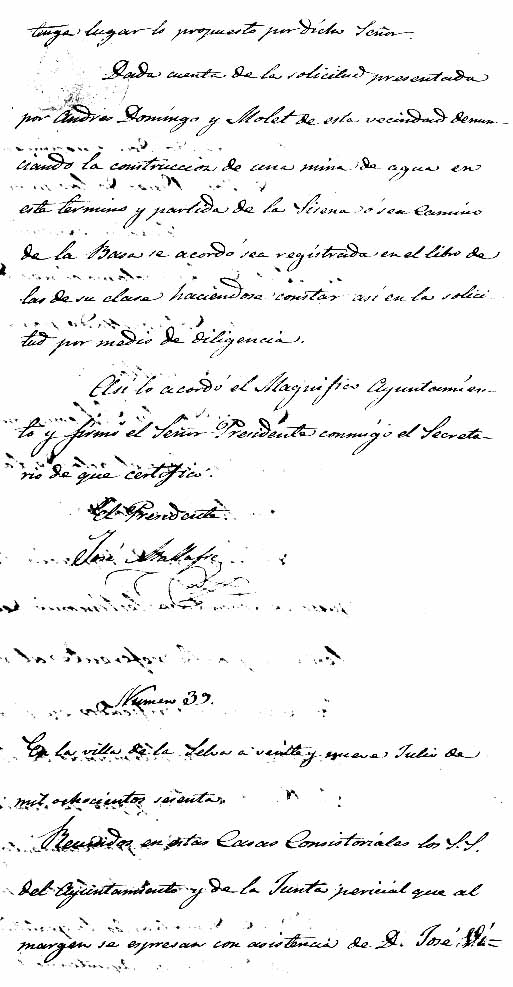 tenga lugar lo propuesto por dicho Señor.
Dada cuenta de la solicitud presentada
por Andres Domingo y Molet de esta vecindad denun-
ciando la construccion de una mina de agua en
este termino y partida de la Sisena ó sea Camino
de la Basa se acordó sea registrada en el libro de
las de su clase haciendose constar asi en la solici
tud por medio de diligencia.
Asi lo acordó el Magnifico Ayuntamien-
to y firmó el Señor Presidente conmigo el Secreta-
rio de que certifico.
El Presidente.
José
Numero 39.
En la villa de la Selva a veinte y nueve Julio de
mil ochocientos sesenta.
Reunidos en estas Casas Consistoriales los S.S.
del Ayuntamiento y de la Junta pericial que al
margen se espresan con asistencia de D. José